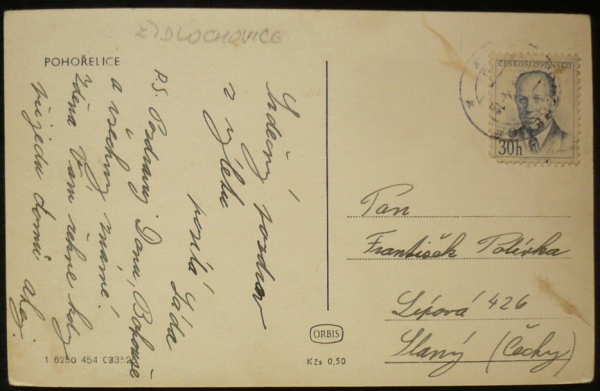 ŽIDLOCHOVICE
POHOŘELICE
Srdečný pozdrav
z výletu
posílá Láďa
P.S. Pozdravuj Dana, Bohouše
a všechny známé!
Zdena Vám řekne kdy
přijedu domů. Ahoj.
ČESKOSLOVENSKO
30h
Pan
František Polívka
Lípová 426
Slaný (Čechy)
ORBIS
Kčs 0,50